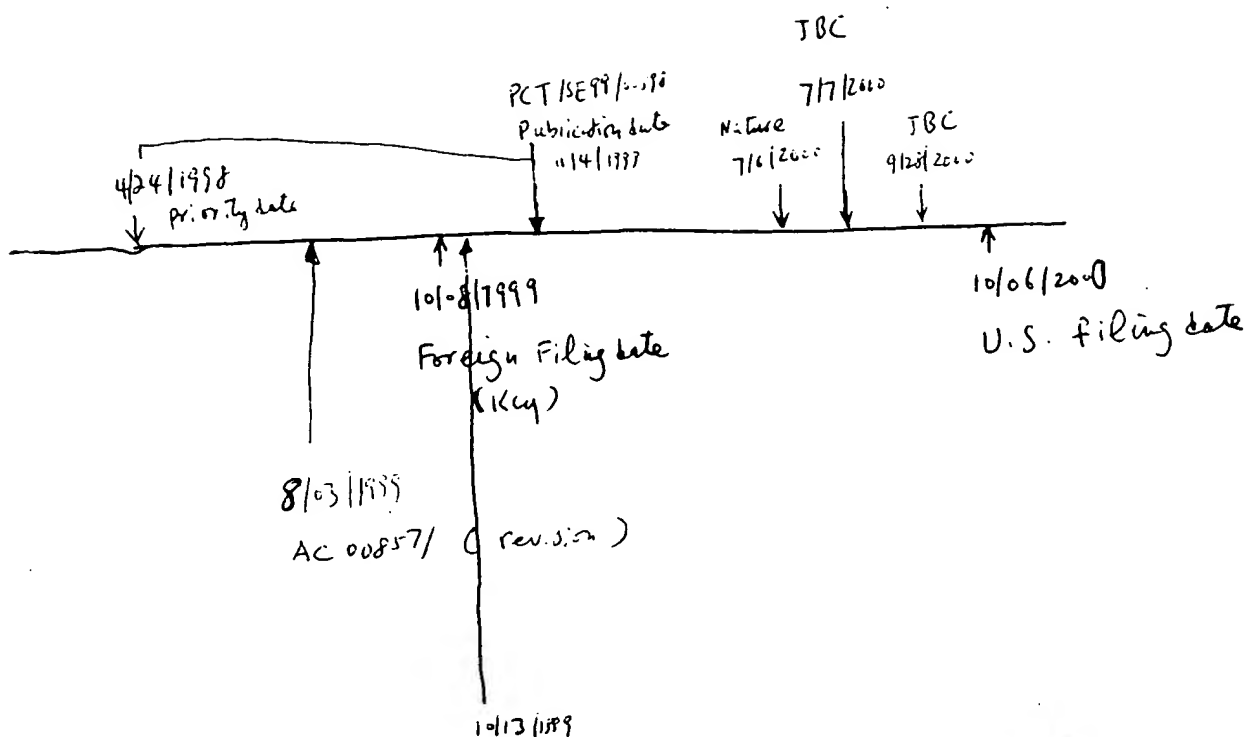 JBC
7/7/2000
PCT/SE99/
Publication date
11/4/1999
Nature
7/6/2000
JBC
9/28/2000
4/24/1998
Priority date
10/08/1999
Foreign Filing date
10/06/2000
U.S. filing date
8/03/1999
AC 008571 (revision)
10/13/1999